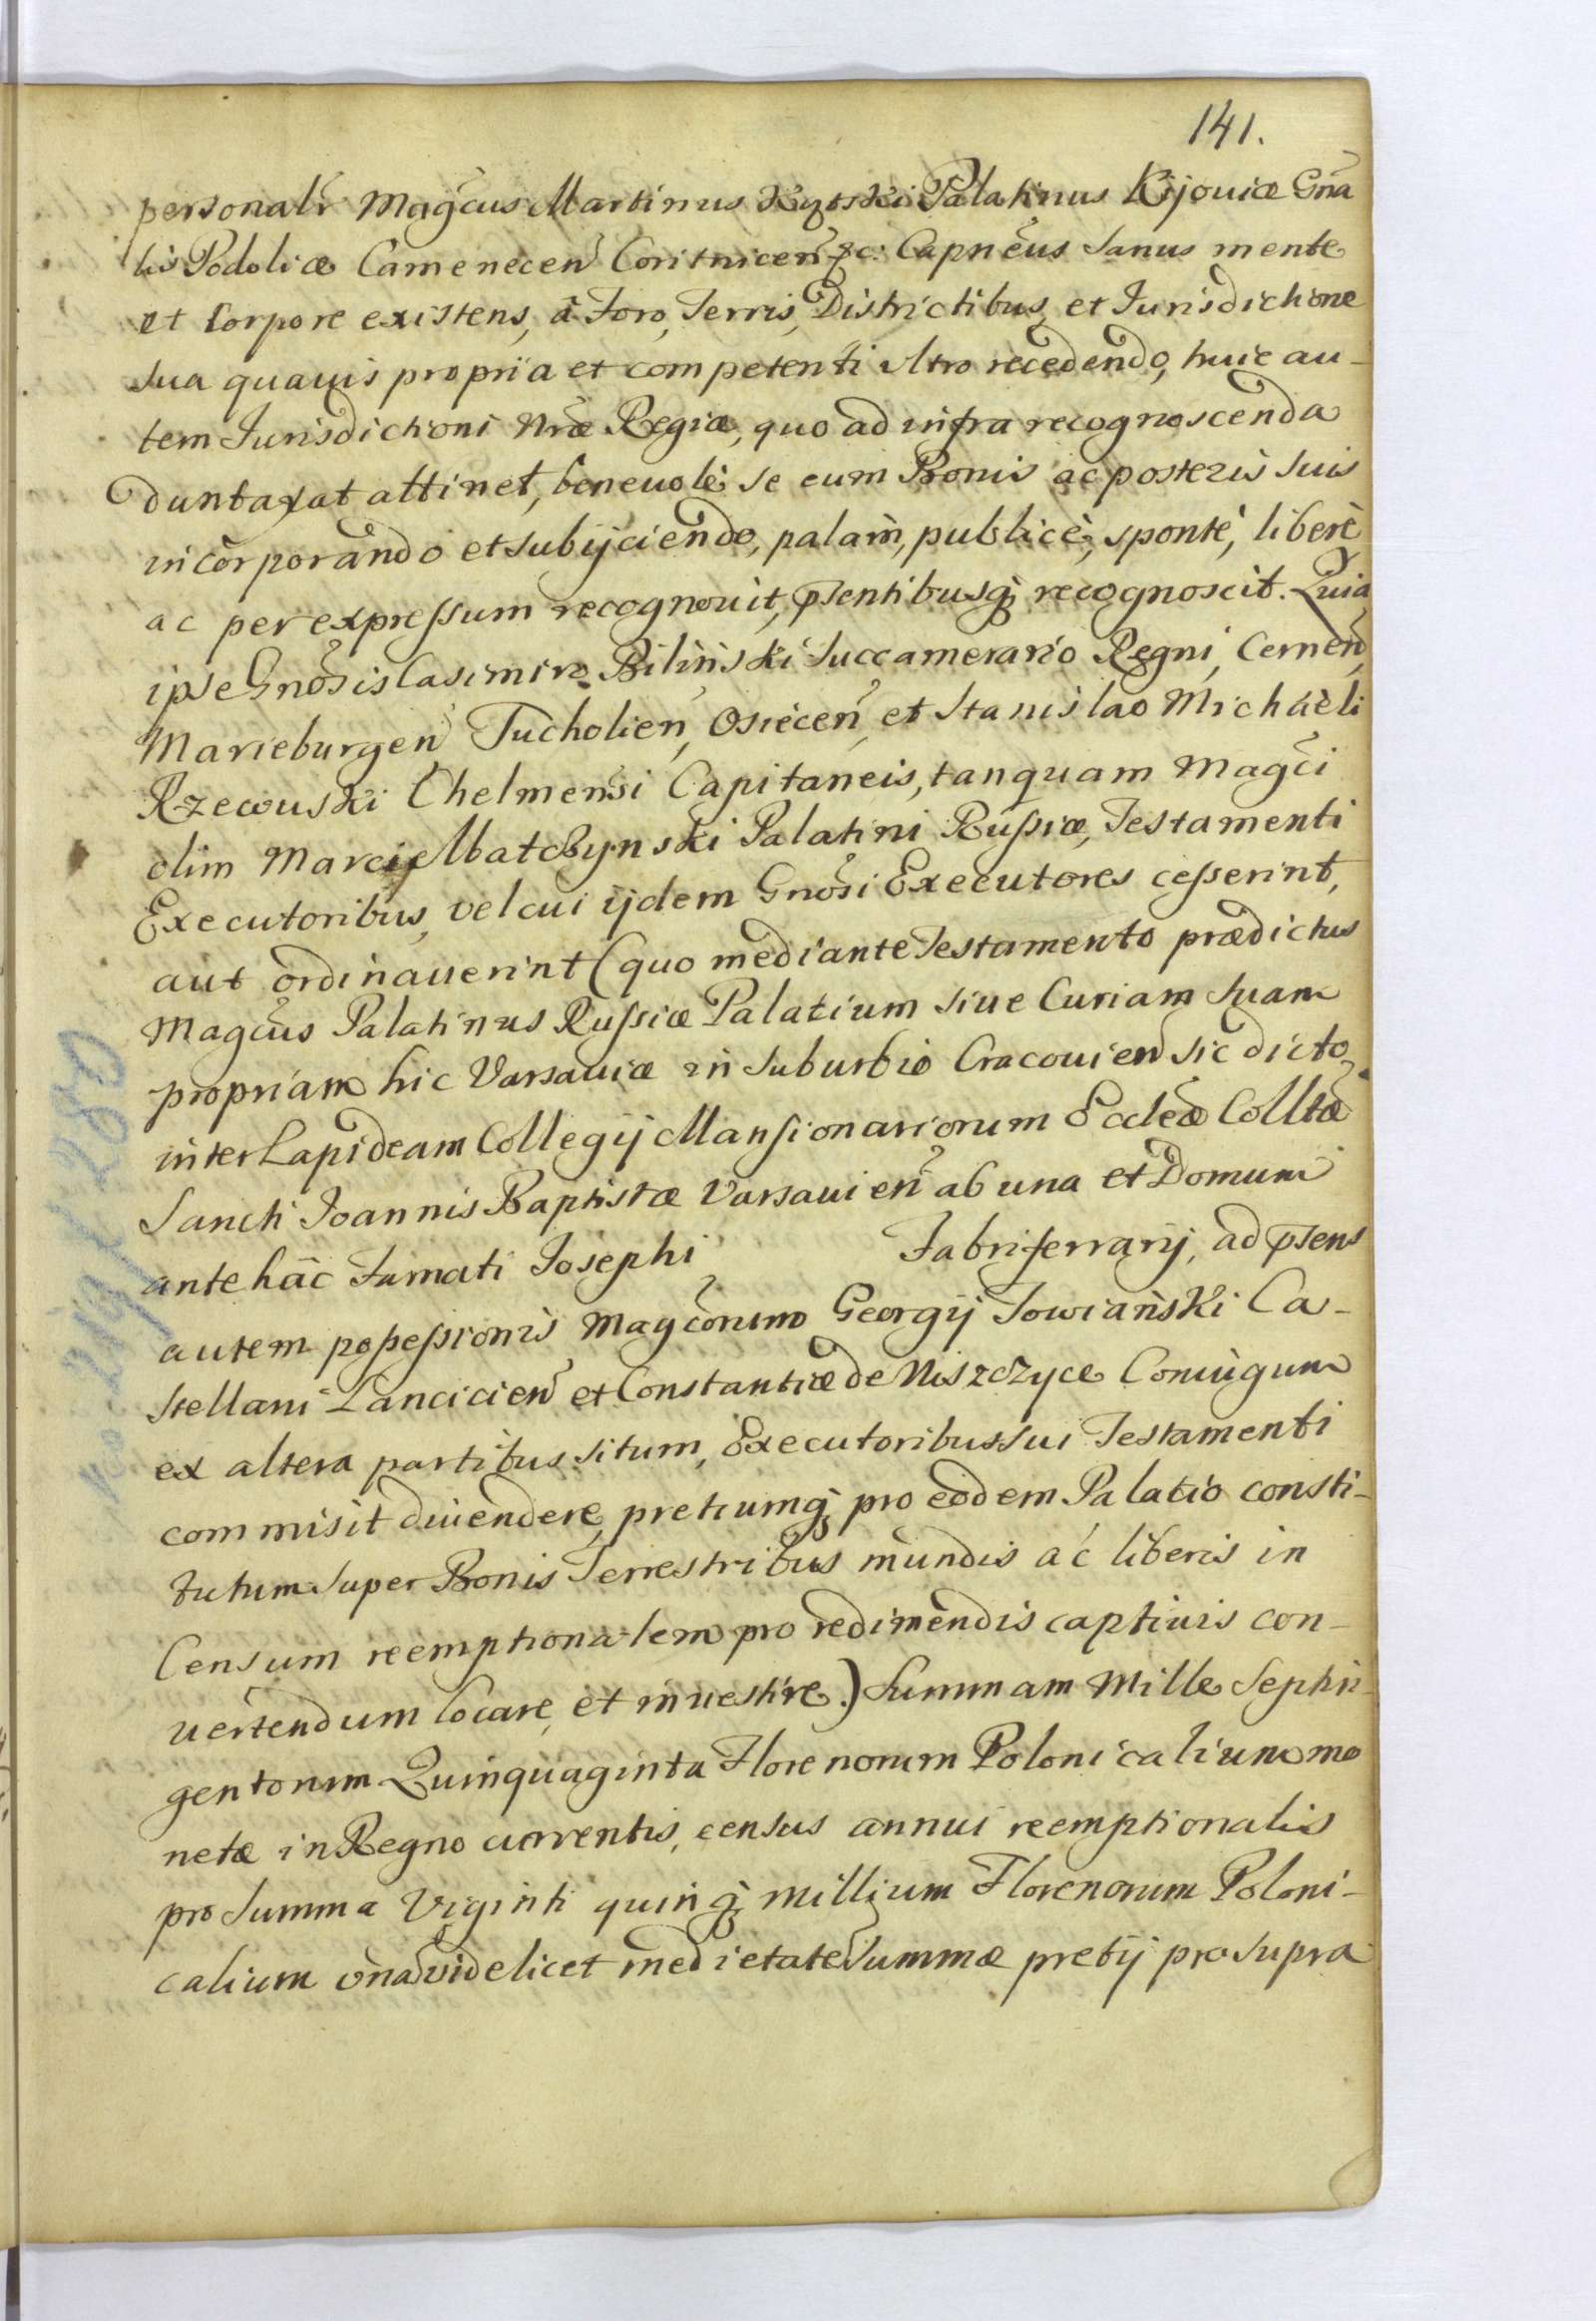 141.
personalr̃ Magcus Martinus Kątski Palatinus Kijouiæ Gña
lis Podoliæ Camenecen̄ Coritnicen̄ &c: Capnēus Sanus mente
et Corpore existens, à Foro, Terris, Districtibus, et Jurisdictione
sua quauis propria et competenti vltro recedendo, huic au-
tem Jurisdictioni Nræ Regiæ, quo ad infra recognoscenda
duntaxat attinet, beneuolè se cum Bonis ac posteris suis
incorporando et subijciendo, palàm, publicè, sponte, liberè
ac per expressum recognouit, p̄sentibusq; recognoscit. Quia
ipse Gnōsis Casimiro Bilinski Succamerario Regni, Cernen̄,
Marieburgen̄ Tucholien̄, Osiecen̄, et Stanislao Michaëli
Rzewuski Chelmensi Capitaneis, tanquam Magci
olim Marci Matczynski Palatini Russiæ, Testamenti
Executoribus, vel cui ijdem Gnōsi Executores cesserint,
aut ordinauerint (quo mediante Testamento prædictus
Magcus Palatinus Russiæ Palatium siue Curiam suam
propriam hic Varsauiæ in suburbio Cracouien̄ sic dicto,
inter Lapideam Collegij Mansionariorum Eccleæ Colltæ
Sancti Joannis Baptistæ Varsauien̄ ab una et Domum
antehac Famati Josephi Fabriferrarij, ad p̄sens
autem possessionis Magcorum Georgij Towiański Ca-
stellani Lancicien̄ et Constantiæ de Niszczyce Coniugum
ex altera partibus situm, Executoribus sui Testamenti
commisit diuendere, pretiumq; pro eodem Palatio consti-
tutum super Bonis Terrestribus mundis ac liberis in
Censum reemptionalem pro redimendis captiuis con-
uertendum locare, et inuestire.) Summam Mille Septin-
gentorum Quinquaginta Florenorum Polonicalium mo
netæ in Regno currentis, census annui reemptionalis
pro Summa Viginti quinq; millium Florenorum Poloni-
calium vna videlicet medietate Summæ pretij pro supra